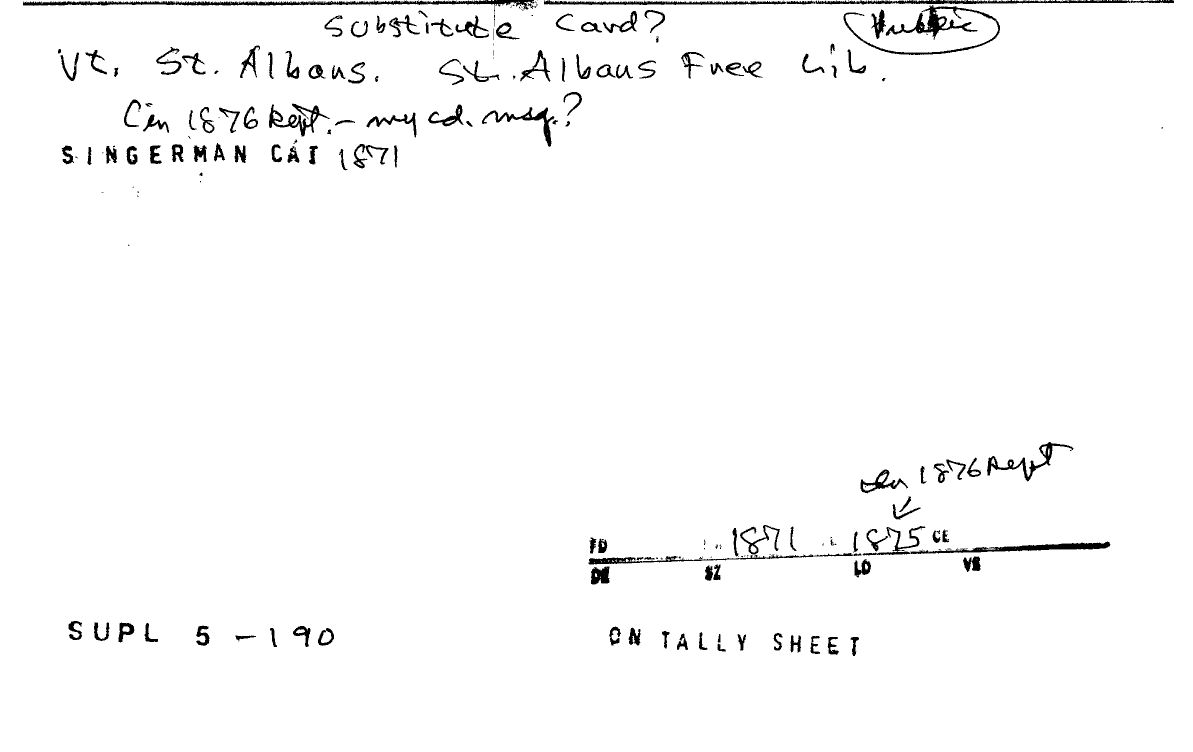 Substitute Card? Public
Vt. St. Albans. St. Albans Free Lib.
(in 1876 Rept. - my cd. msg.?
SINGERMAN CAT 1871
in 1876 Rept
FD 1871 1875 CE
DE SZ LD VS
SUPL 5 - 190 ON TALLY SHEET